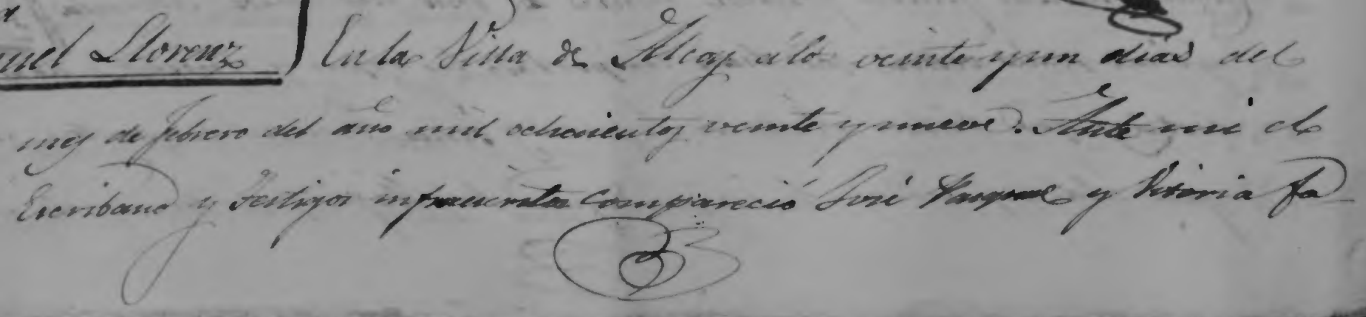 uel Llorenz En la Villa de Alcoy a los veinte y un dias del
mes de febrero del año mil ochocientos veinte y nueve. Ante mi el
Escribano y testigos infraescritos compareció José Pasqual y Vitoria fa-